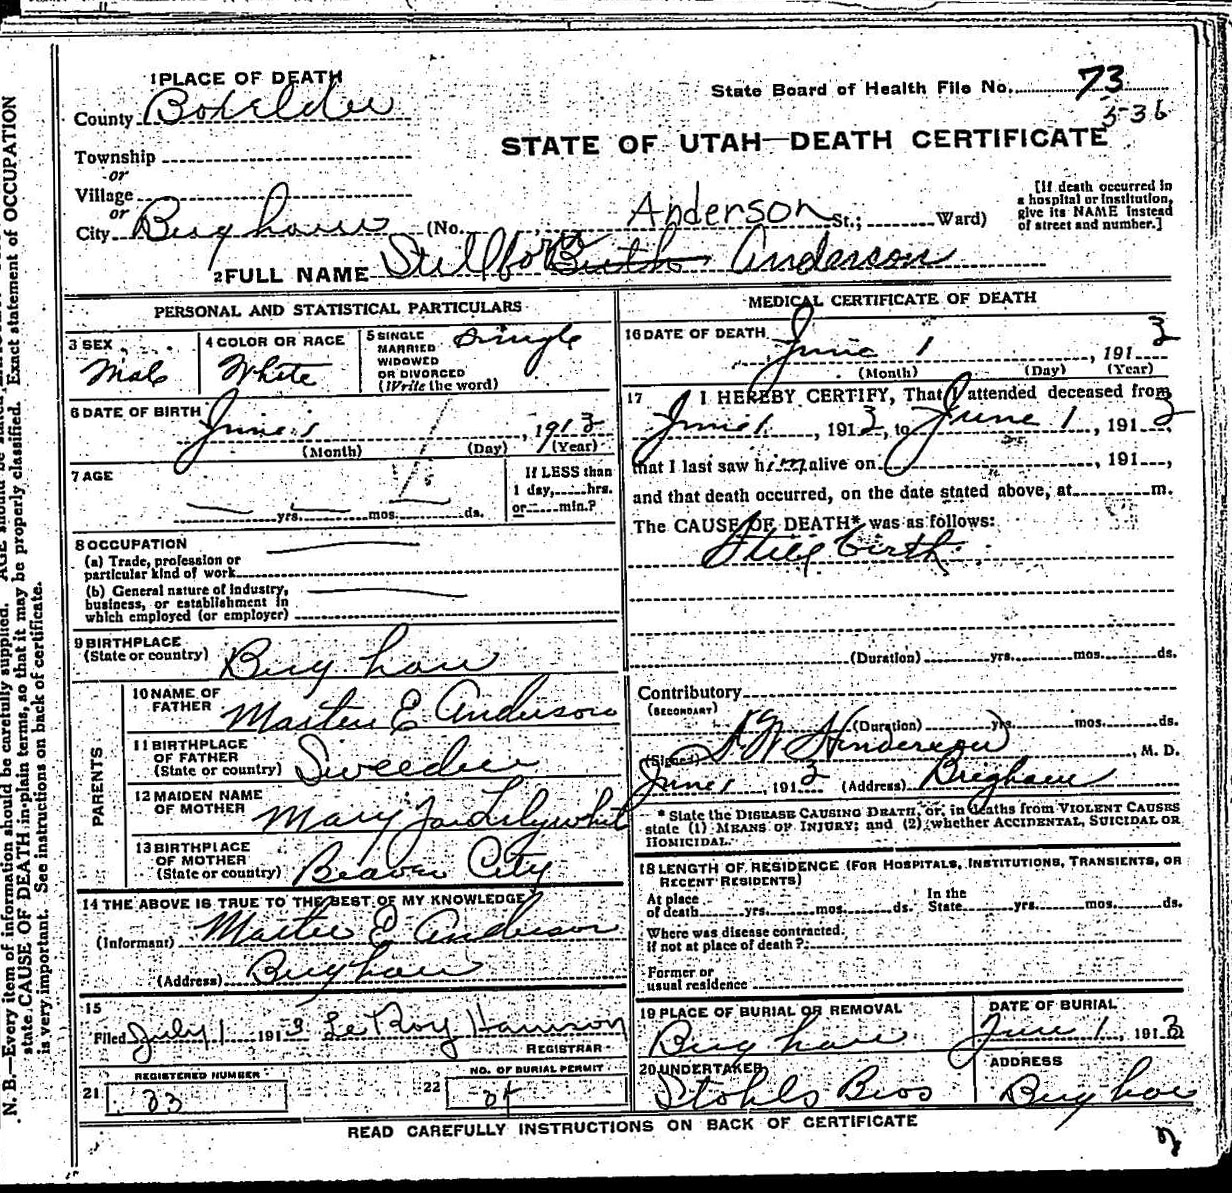 1 PLACE OF DEATH
County Boxelder
State Board of Health File No. 73
536
STATE OF UTAH—DEATH CERTIFICATE
Township
or
Village
or
City Brigham (No. Anderson St.; Ward)
[If death occurred in
a hospital or institution,
give its NAME instead
of street and number.]
2 FULL NAME Stillborn Anderson
PERSONAL AND STATISTICAL PARTICULARS
3 SEX
Male
4 COLOR OR RACE
White
5 SINGLE
MARRIED
WIDOWED
OR DIVORCED
(Write the word)
Single
6 DATE OF BIRTH
June 1, 1913
(Month) (Day) (Year)
7 AGE
yrs. mos. ds.
If LESS than
1 day, hrs.
or min.?
8 OCCUPATION
(a) Trade, profession or
particular kind of work
(b) General nature of industry,
business, or establishment in
which employed (or employer)
9 BIRTHPLACE
(State or country) Brigham
PARENTS
10 NAME OF
FATHER Martin E Anderson
11 BIRTHPLACE
OF FATHER
(State or country) Sweeden
12 MAIDEN NAME
OF MOTHER Mary
13 BIRTHPLACE
OF MOTHER
(State or country) Beaver City
14 THE ABOVE IS TRUE TO THE BEST OF MY KNOWLEDGE
(Informant) Martin E Anderson
(Address) Brigham
15
Filed July 1 1913 Le Roy Harrison
REGISTRAR
REGISTERED NUMBER
21 33
NO. OF BURIAL PERMIT
22
MEDICAL CERTIFICATE OF DEATH
16 DATE OF DEATH
June 1, 1913
(Month) (Day) (Year)
17 I HEREBY CERTIFY, That I attended deceased from
June 1, 1913, to June 1, 1913
that I last saw him alive on, 191,
and that death occurred, on the date stated above, at m.
The CAUSE OF DEATH* was as follows:
Still birth
(Duration) yrs. mos. ds.
Contributory
(SECONDARY)
(Duration) yrs. mos. ds.
(Signed) Henderson, M. D.
June 1, 1913 (Address) Brigham
* State the DISEASE CAUSING DEATH, or, in deaths from VIOLENT CAUSES
state (1) MEANS OF INJURY; and (2) whether ACCIDENTAL, SUICIDAL OR
HOMICIDAL.
18 LENGTH OF RESIDENCE (FOR HOSPITALS, INSTITUTIONS, TRANSIENTS, OR
RECENT RESIDENTS)
At place
of death yrs. mos. ds.
In the
State yrs. mos. ds.
Where was disease contracted.
if not at place of death?
Former or
usual residence
19 PLACE OF BURIAL OR REMOVAL
Brigham
DATE OF BURIAL
June 1, 1913
20 UNDERTAKER
Stohls Bros
ADDRESS
Brigham
READ CAREFULLY INSTRUCTIONS ON BACK OF CERTIFICATE
N. B.—Every item of information should be carefully supplied. AGE should be stated
state CAUSE OF DEATH in plain terms, so that it may be properly classified. Exact statement of OCCUPATION
is very important. See instructions on back of certificate.